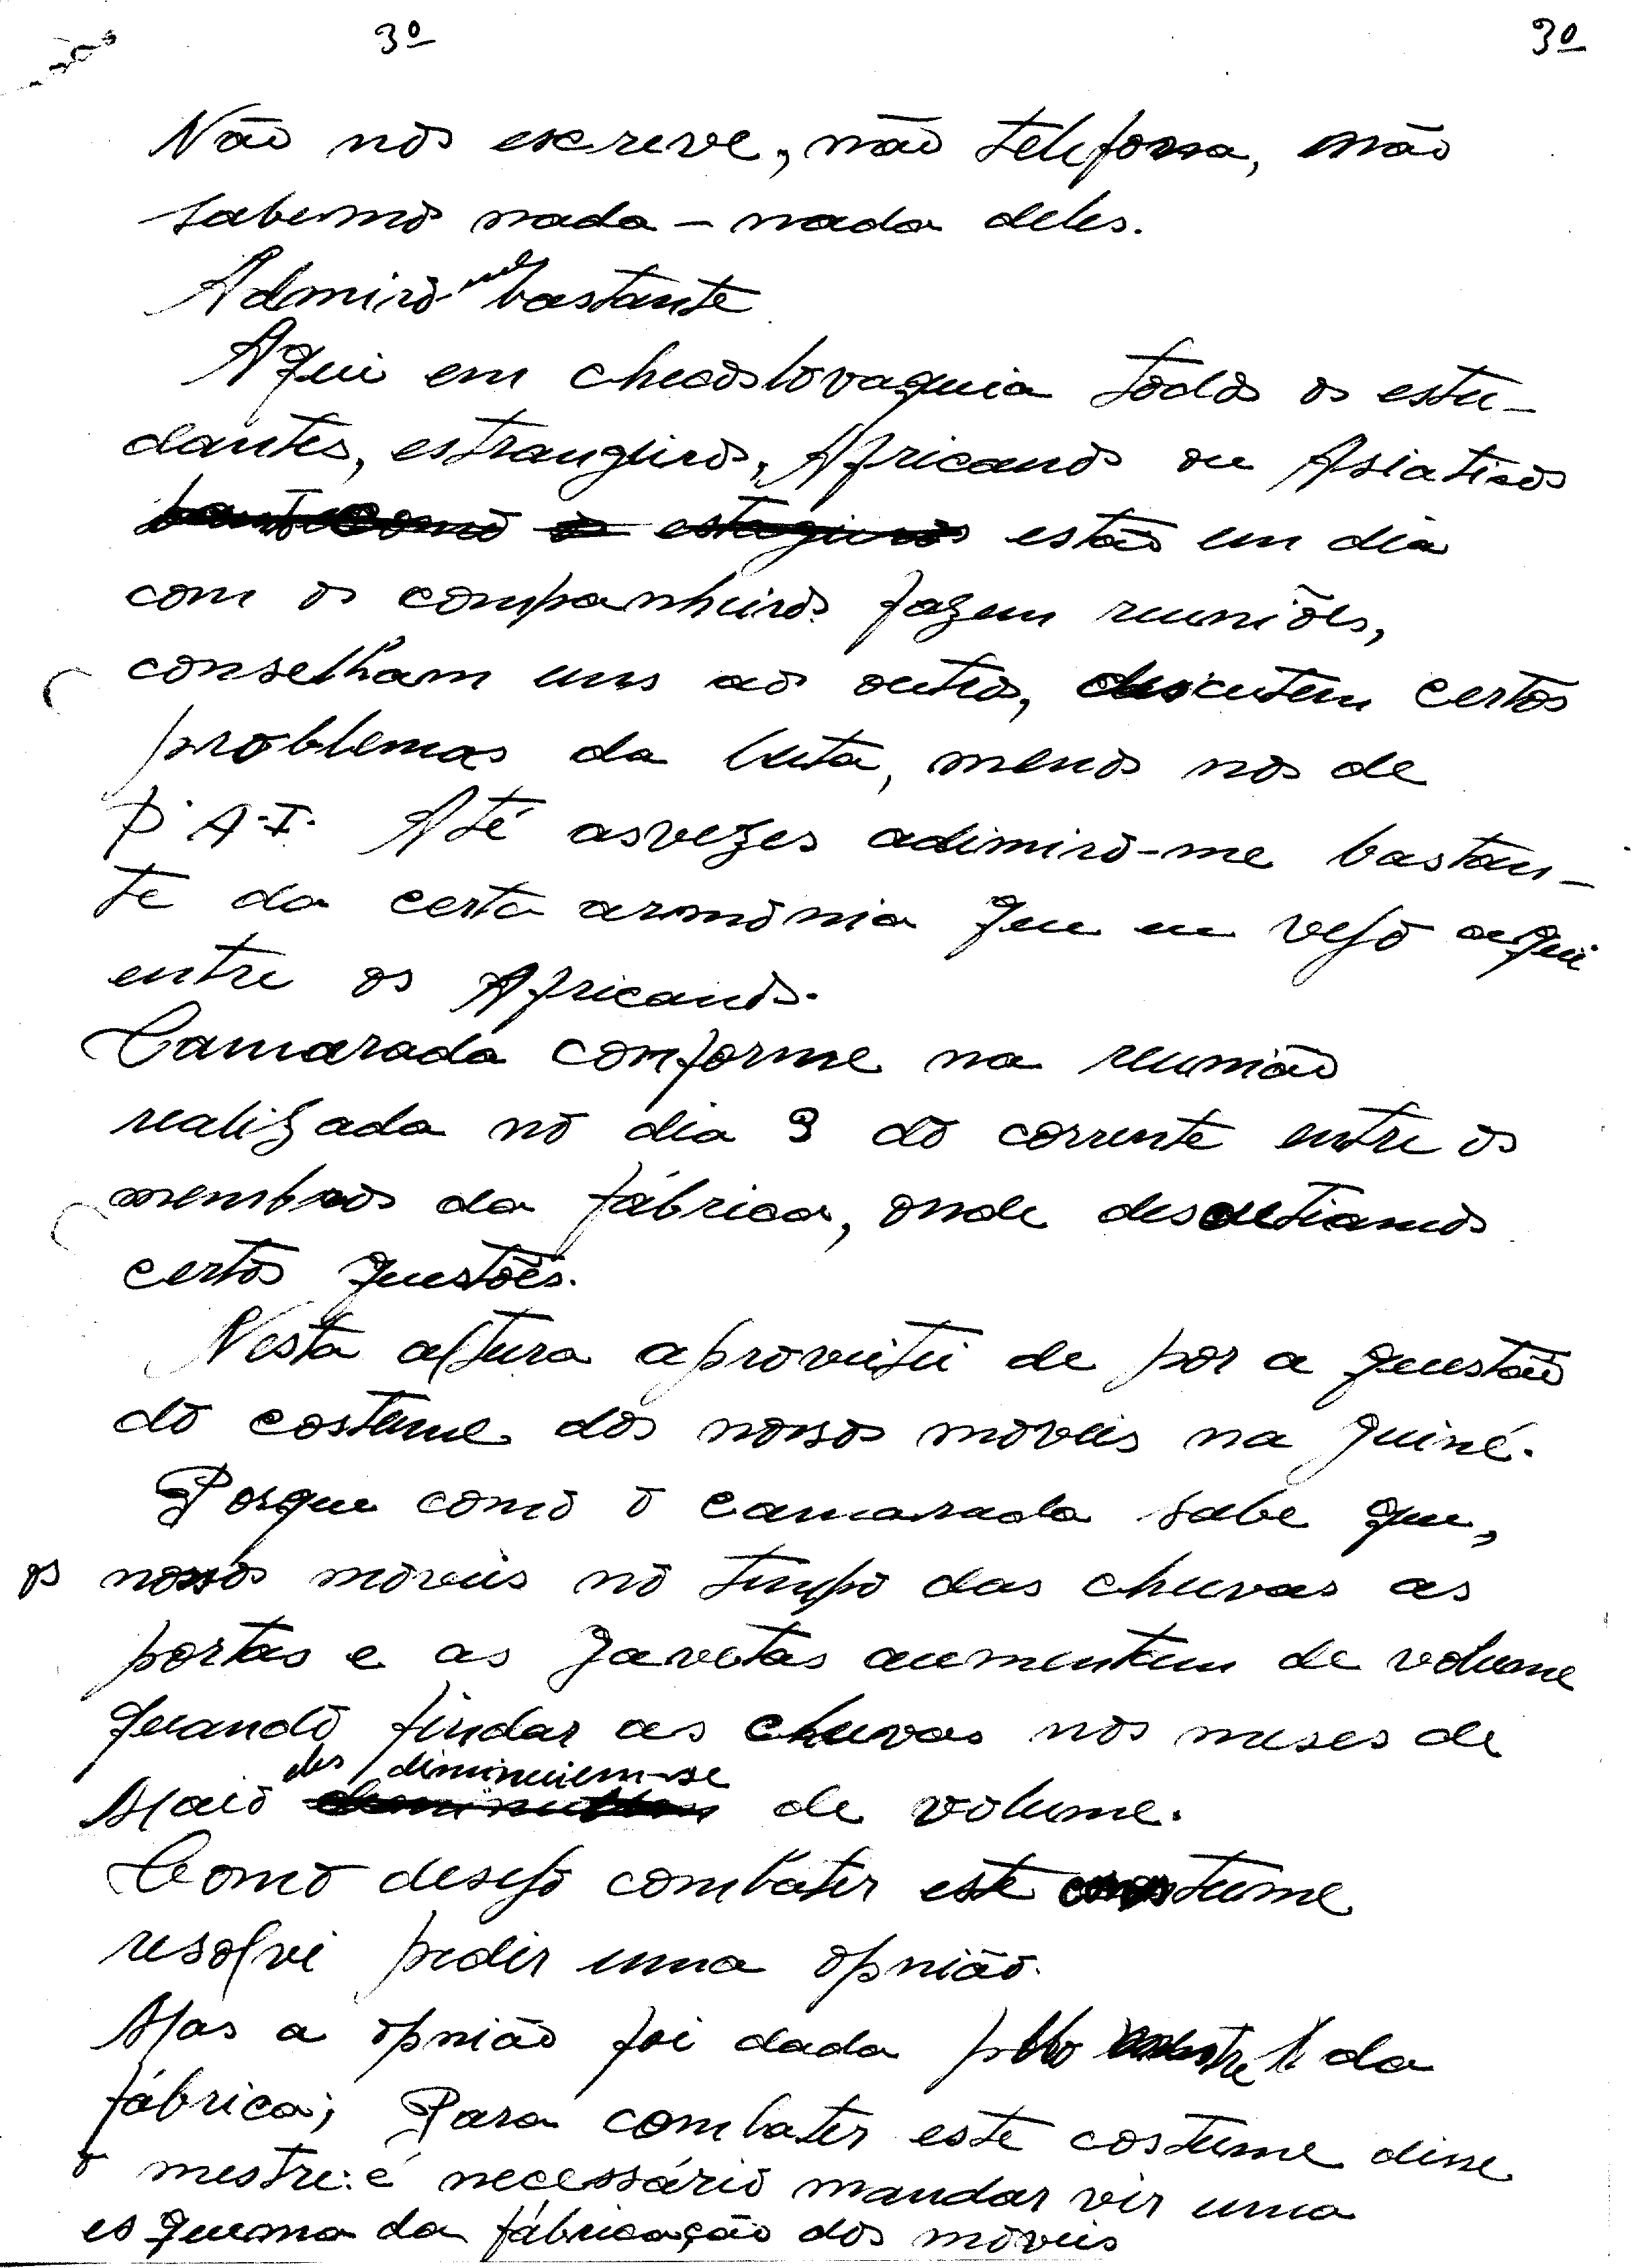 3º 3º
Não nos escreve, não telefona, não
sabemos nada - nada deles.
Admiro-me bastante
Aqui em checoslovaquia todos os estu-
dantes, estrangeiros, Africanos ou Asiaticos
estão em dia
com os companheiros fazem reuniões,
conselham uns aos outros, discutem certos
problemas da luta, menos nos de
P.A.I. Até asvezes adimiro-me bastan-
te da certa armonia que eu vejo aqui
entre os Africanos.
Camarada conforme na reunião
realizada no dia 9 do corrente entre os
membros da fábrica, onde descutiamos
certos questões.
Nesta altura aproveitei de por a questão
do costume dos nossos moveis na guiné.
Porque como o camarada sabe que,
os nossos moveis no tempo das chuvas as
portas e as gavetas aumentam de volume
quando findar as chuvas nos meses de
Maio eles diminuiem-se de volume.
Como desejo combater este costume
resolvi pedir uma opnião.
Mas a opnião foi dada pelo mestre da
fábrica; Para combater este costume disse
o mestre: é necessário mandar vir uma
esquema da fábricação dos moveis